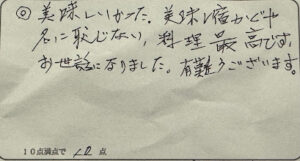 ◎ 美味しいかった。美味し宿かぐや
名に恥じない、料理最高です。
お世話になりました。有難うございます。
10点満点で 12 点